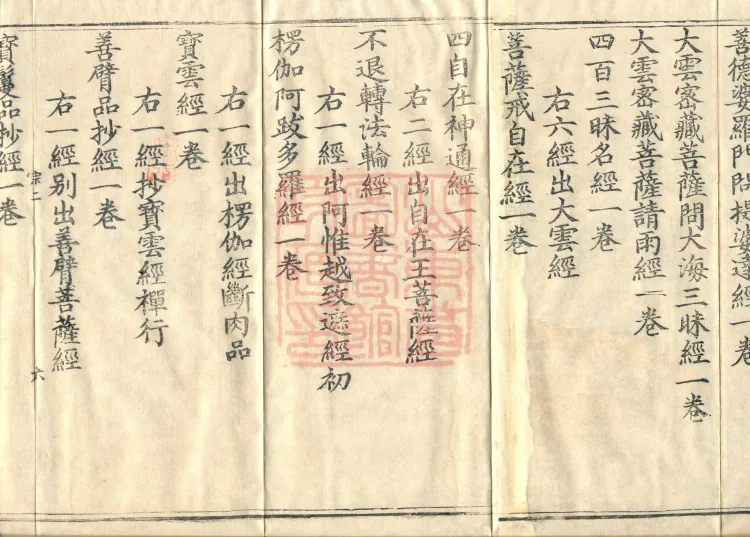 善德婆羅門問提婆達經一卷
大雲密藏菩薩問大海三昧經一卷
大雲密藏菩薩請雨經一卷
四百三昧名經一卷
右六經出大雲經
菩薩戒自在經一卷
四自在神通經一卷
右二經出自在王菩薩經
不退轉法輪經一卷
右一經出阿惟越致遮經初
楞伽阿跋多羅經一卷
右一經出楞伽經斷肉品
寶雲經一卷
右一經抄寶雲經禪行
善臂品抄經一卷
右一經別出善臂菩薩經
宗二 六
寶髻品抄經一卷